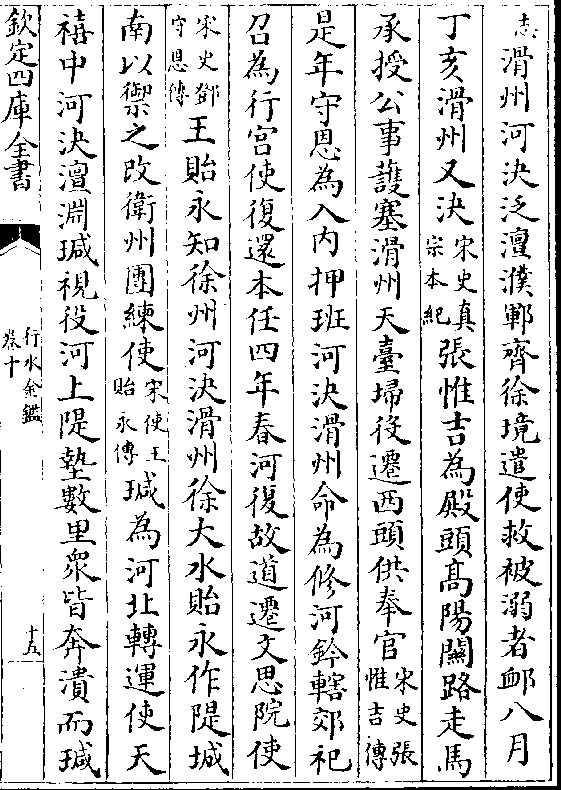 志滑州河決泛澶濮鄆齊徐境遣使救被溺者䘏八月
丁亥滑州又決宋史真宗本紀張惟吉為殿頭髙陽關路走馬
承授公事䕶塞滑州天臺埽役遷西頭供奉官宋史張惟吉傳
是年守恩為入内押班河決滑州命為修河鈐轄郊祀
召為行宫使復還本任四年春河復故道遷文思院使
宋史鄧守恩傳王貽永知徐州河決滑州徐大水貽永作隄城
南以禦之改衛州團練使宋使王貽永傳瑊為河北轉運使天
禧中河決澶淵瑊視役河上隄墊數里衆皆奔潰而瑊
欽定四庫全書
行水金鑑
卷十
十五